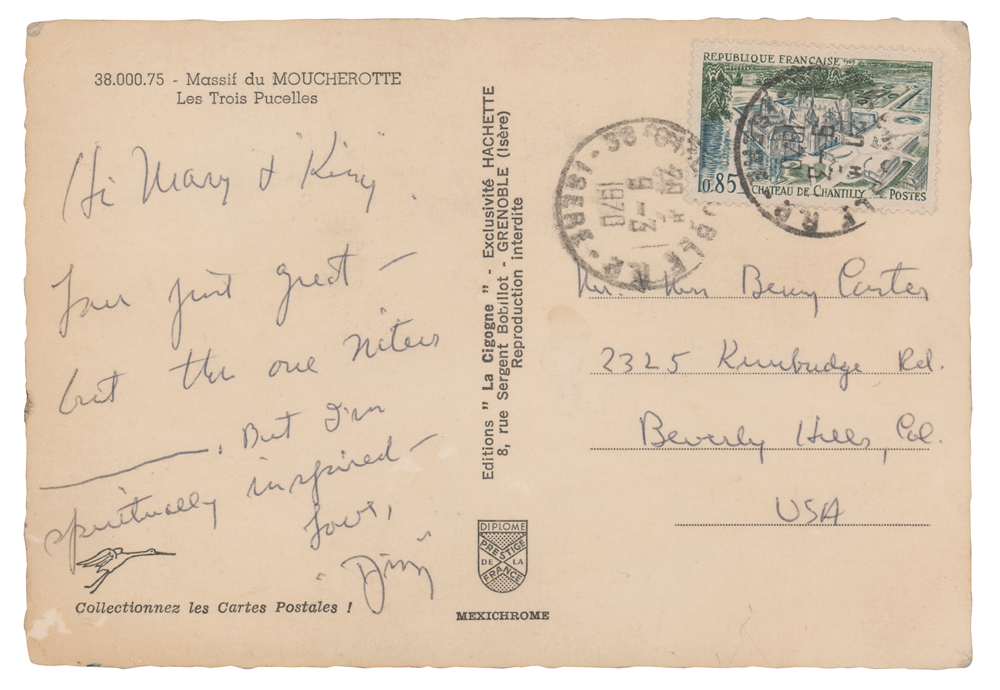 38.000.75 - Massif du MOUCHEROTTE
Les Trois Pucelles
Hi Mary & King
Tour just great -
but the one niters
. But I'm
spiritually inspired -
Love,
"Dizzy"
Collectionnez les Cartes Postales !
Editions " La Cigogne " - Exclusivité HACHETTE
8, rue Sergent Bobillot - GRENOBLE (Isère)
Reproduction interdite
DIPLOME
PRESTIGE
DE LA
FRANCE
MEXICHROME
REPUBLIQUE FRANÇAISE 1969
0.85
CHATEAU DE CHANTILLY
POSTES
GRENOBLE R.P.
ISERE
9-3
1970
Mr. & Mrs Benny Carter
2325 Kimbridge Rd.
Beverly Hills, Cal.
USA